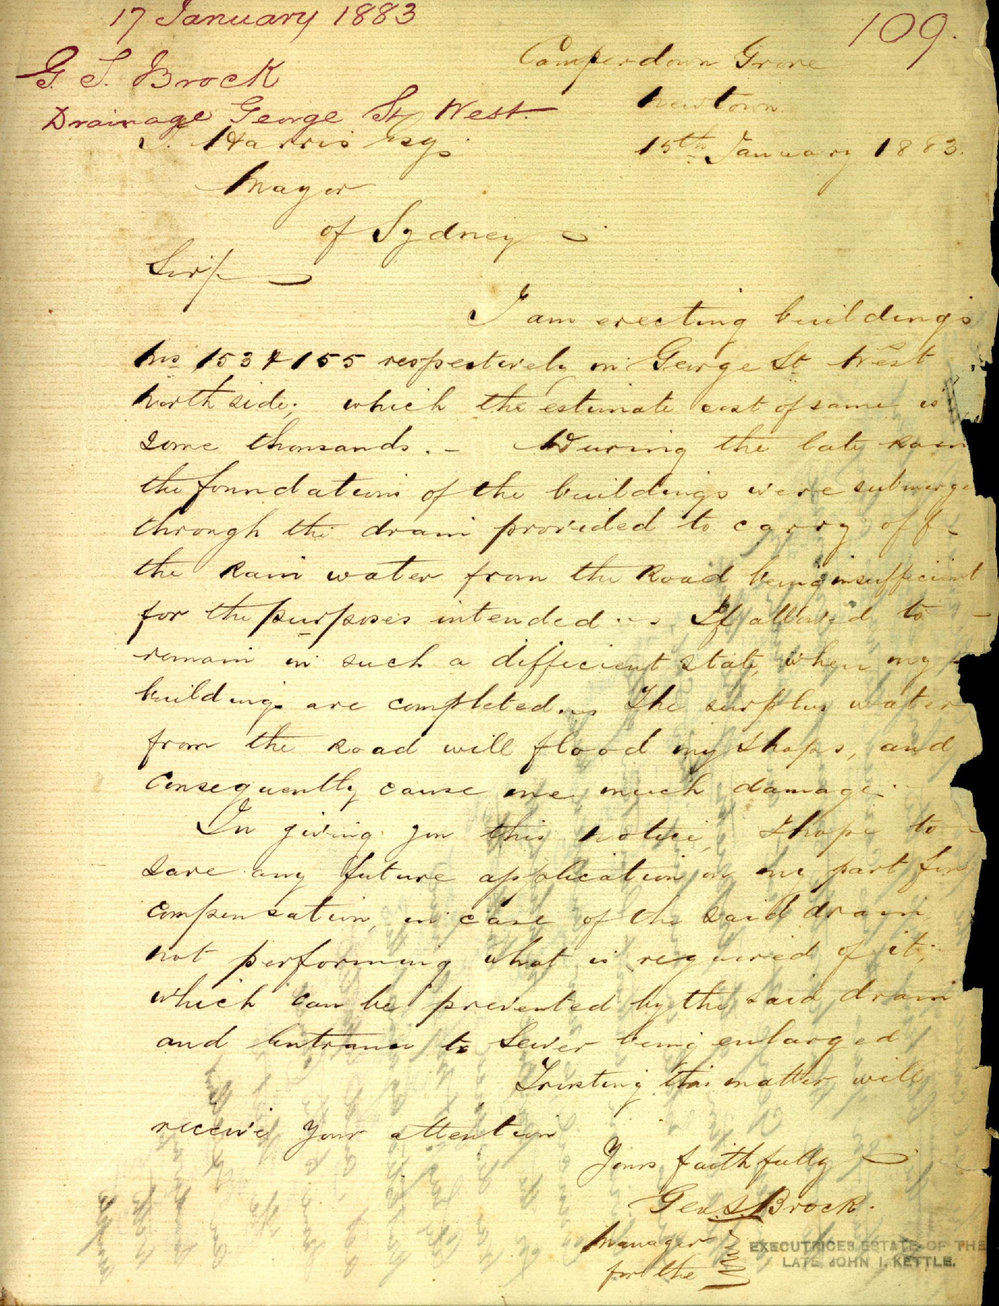 17 January 1883
109.
G. S. Brock
Drainage George St. West.
Camperdown Grove
Newtown
15th January 1883.
J. Harris Esq.
Mayor
of Sydney
Sir/-
I am erecting buildings
Nos 153 & 155 respectively in George St West
North side; which the estimate cost of same is
some thousands. - During the late Rain
the foundations of the buildings were submerge
through the drain provided to carry off
the Rain water from the Road being insufficient
for the purposes intended. If allowed to
remain in such a difficient state, when my
buildings are completed. The surplus water
from the Road will flood my shops, and
consequently cause me much damage.
In giving you this notice, I hope to
save any future application on my part for
compensation, in case of the said drain
not performing what is required of it;
which can be prevented by the said drain
and entrance to Sewer being enlarged
Trusting this matter will
receive your attention
Yours faithfully
Geo. S. Brock.
Manager
for the
EXECUTRICES ESTATE OF THE
LATE JOHN I. KETTLE.